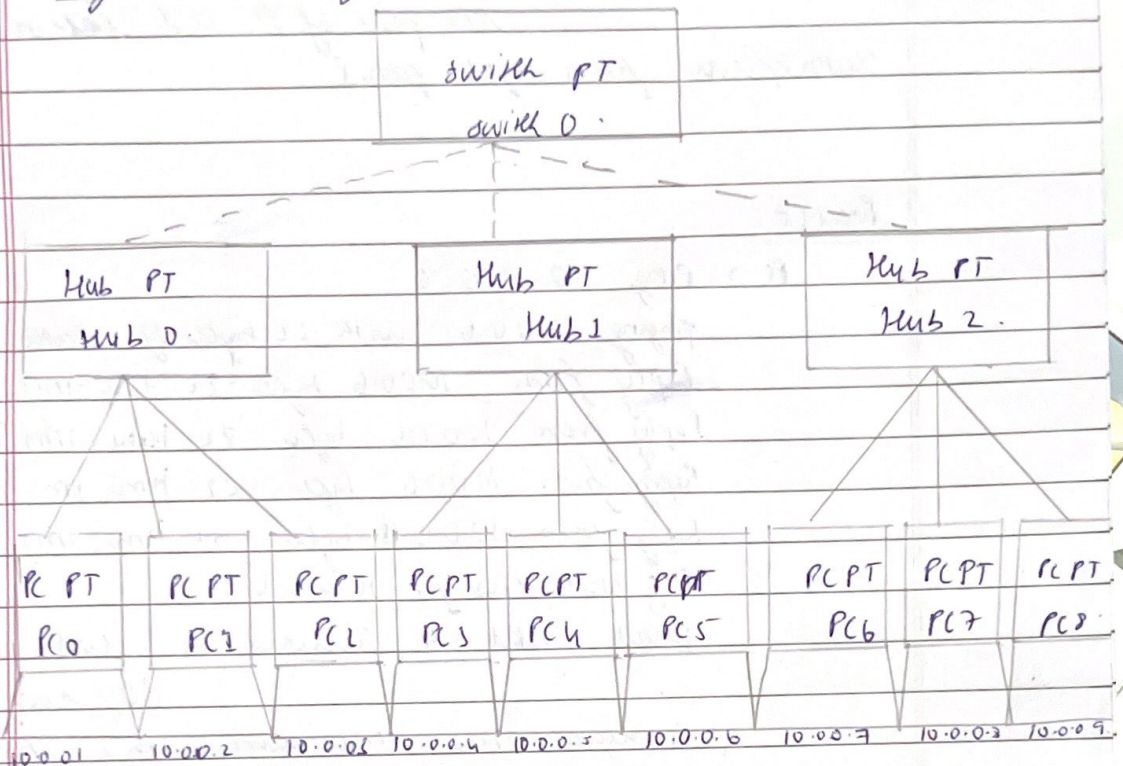 Switch PT
Switch 0.
Hub PT
Hub 0
Hub PT
Hub 1
Hub PT
Hub 2.
PC PT
PC0
PC PT
PC1
PC PT
PC2
PC PT
PC3
PC PT
PC4
PC PT
PC5
PC PT
PC6
PC PT
PC7
PC PT
PC8.
10.0.01 10.0.0.2 10.0.03 10.0.0.4 10.0.0.5 10.0.0.6 10.0.0.7 10.0.0.8 10.0.0 9.